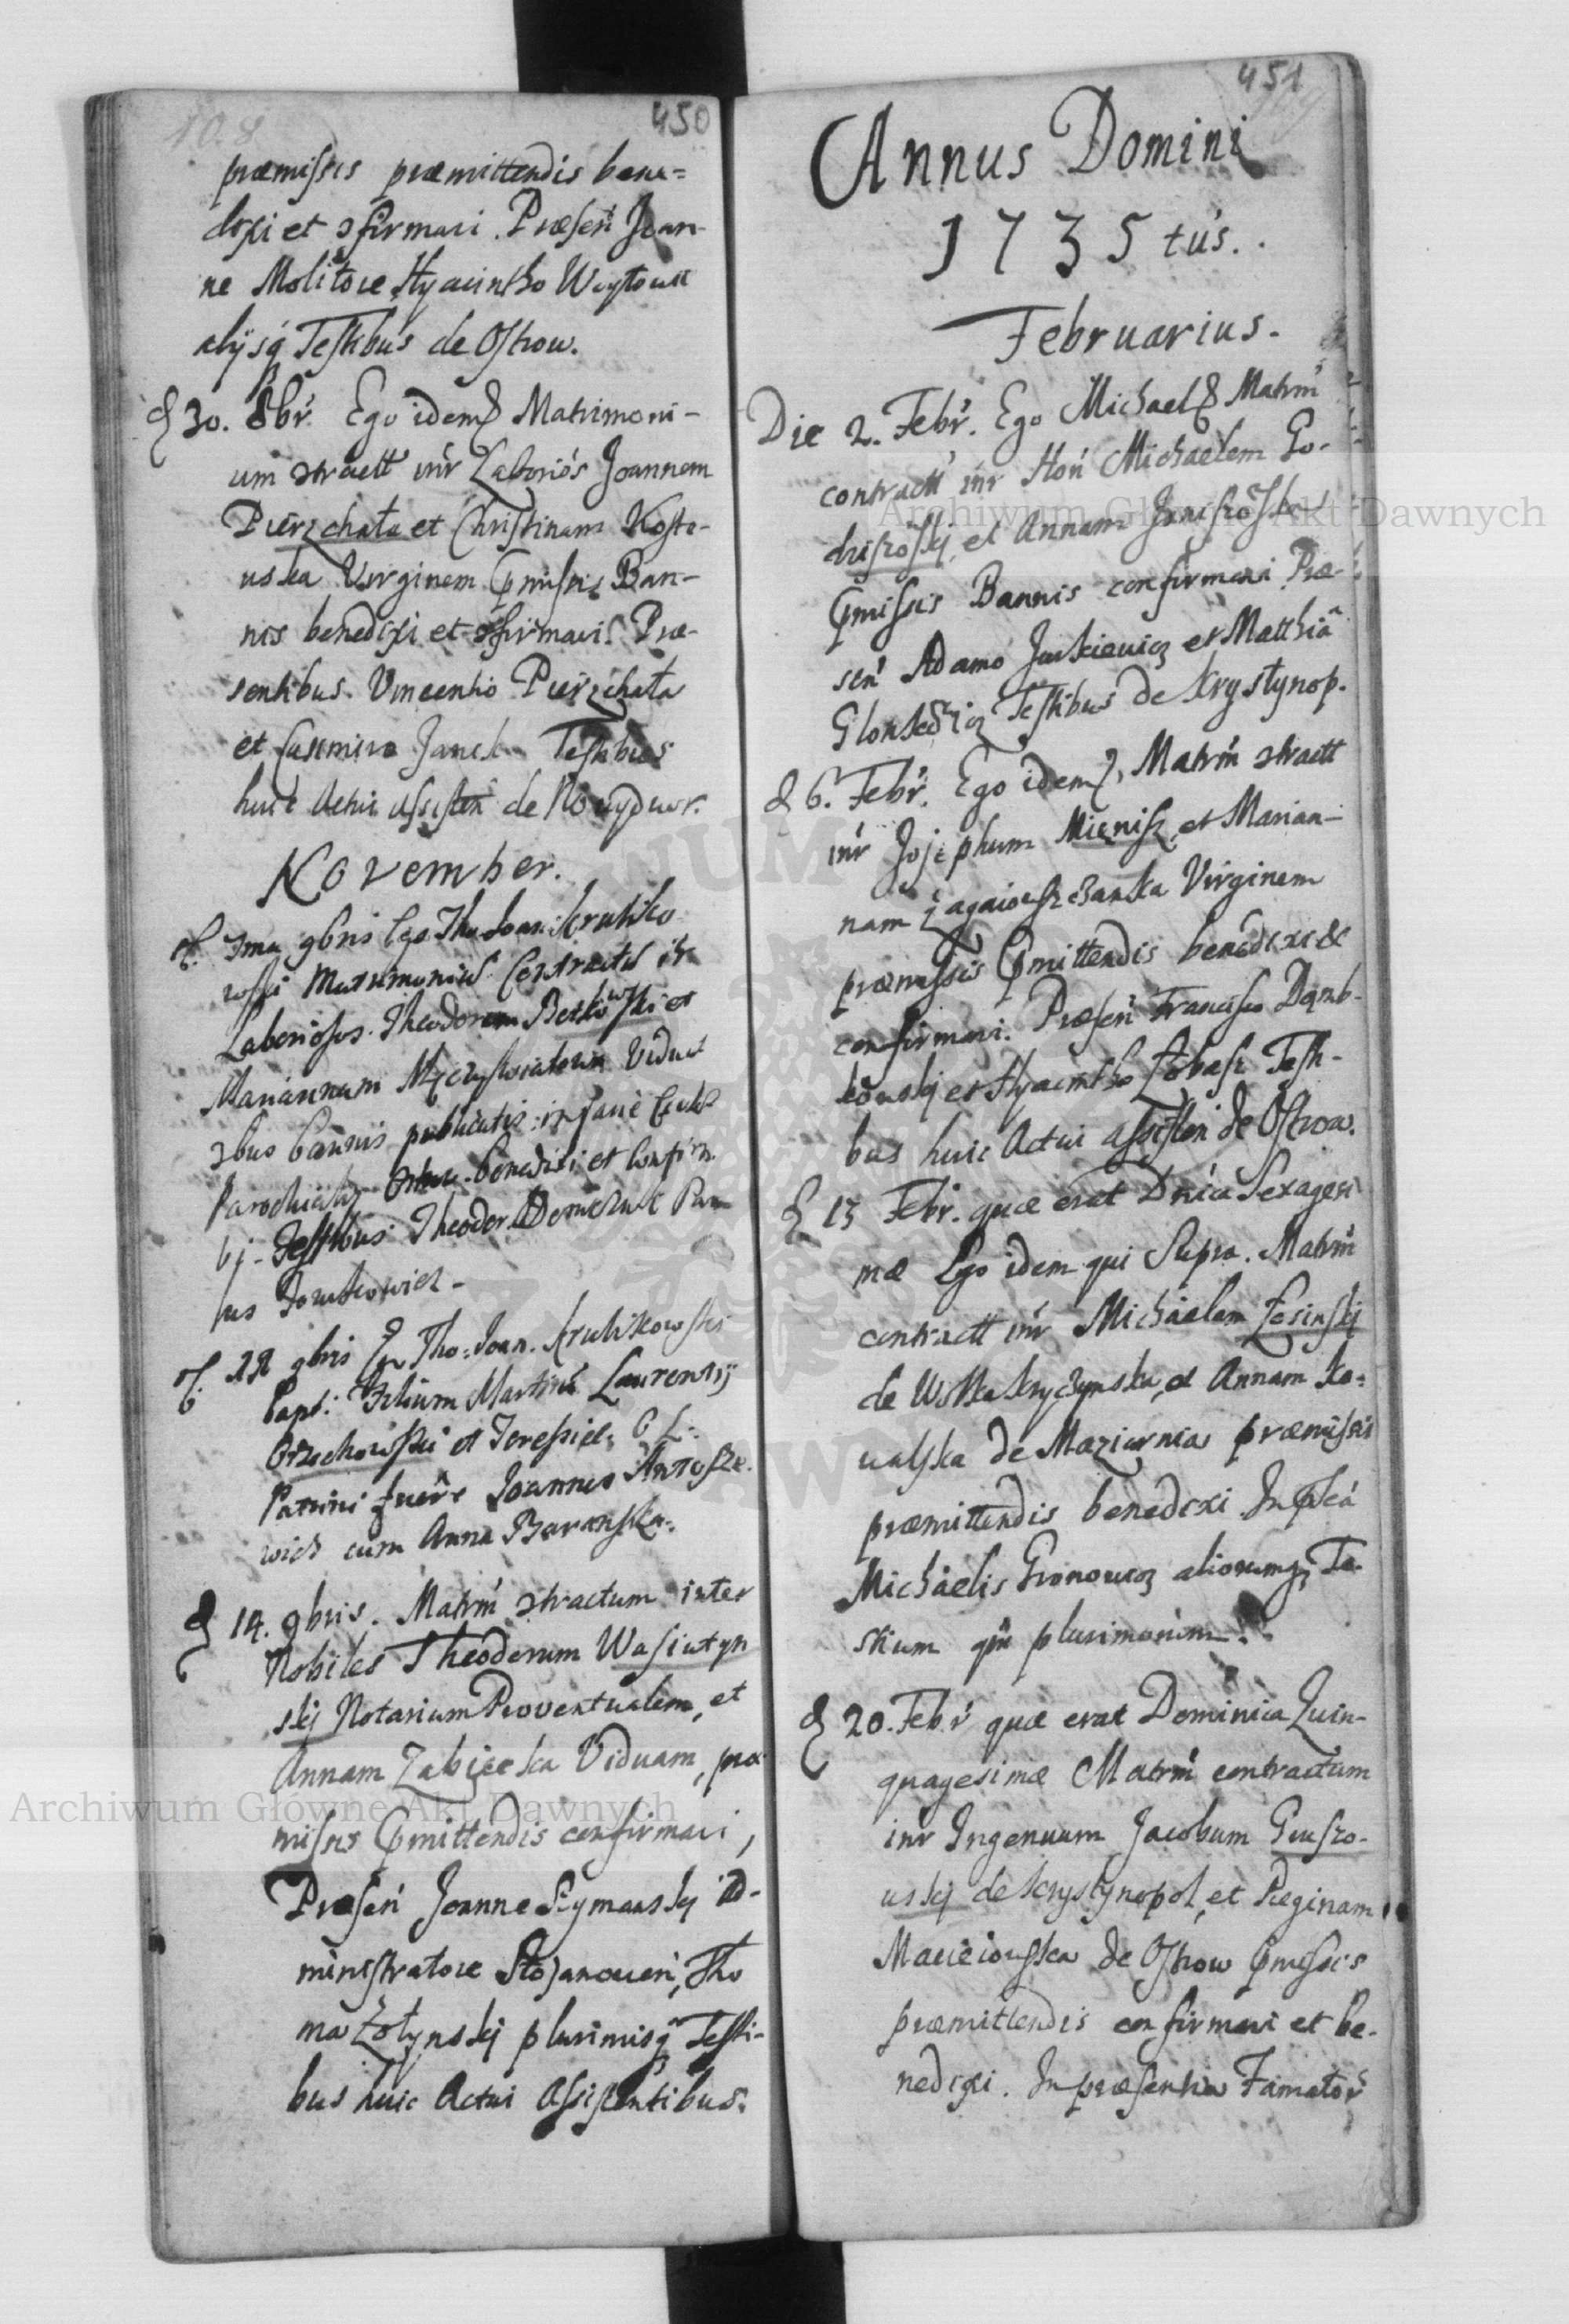 450
præmissis præmittendis bene=
dixi et ɔfirmavi. Præsen Joan-
ne Molitore Hyacintho Woytowic
alijsq Testibus de Ostrow.
d 30. 8br. Ego idem Matrimoni-
um ɔtractt intr Laborios Joannem
Pierzchała et Christinam Koste-
uska Virginem pmissis Ban-
nis benedixi et ɔfirmavi. Præ-
sentibus Vincentio Pierzchała
et Casimiro Janek Testibus
huic Actui assisten de Nowydwor.
November.
d. 1ma 9bris Ego Tho Joan. Kruliko
wski Matrimoniu Contractu itr
Laboriosos Theodorum Berkowski et
Mariannam Viduã
3bus bannis publicatis in facie Eccles
Parochialis benedixi et confirm
bj. Testibus Theodor Demczuk Pau
lus Domkowicz -
d. 9bris Ego Tho: Joan. Krulikowski
bapt: Filium Martinũ Laurentij
Orzechowski et Teressiæ C L.
Patrini fuere Joannes Antosze
wicz cum Anna Baranska.
d 14. 9bris. Matrm ɔtractum inter
Nobiles Theodorum Wasiutyn
skij Notarium Proventualem, et
Annam Zabicska Viduam, præ
missis pmittendis confirmavi,
Præsen Joanne Szymanskij Ad-
ministratore Stojanovien, Tho
ma Zołynskij plurimisq Testi-
bus huic Actui Assistentibus.
451
Annus Domini
1735 tus.
Februarius.
Die 2. Febr. Ego Michael Matrm
contractt intr Hon Michaelem Go-
driszoskij, et Annam Janiszoska
pmissis Bannis confirmavi Præ-
sen Adamo Juskiewicz et Matthiã
Testibus de Krystynop.
d 6. Febr. Ego idem, Matrm ɔtractt
intr Josephum Mięnisz et Marian-
nam Virginem
præmissis pmittendis benedixi &
confirmavi. Præsen Francisco Dąmb-
kowskij et Hyacintho Łobasz Testi-
bus huic Actui assisten de Ostrow.
d 13 Febr. quæ erat Dnica Sexagesi
mæ Ego idem qui Supra. Matrm
contractt intr Michaelem Łosinskij
de Wolka Kryczynska, et Annam Ko=
walska de Maziarnia præmissis
præmittendis benedixi. In pntiã
Michaelis Gronowicz aliorumq Te-
stium qm plurimorum.
d 20. Febr quæ erat Dominica Quin-
quagesimæ Matrm contractum
intr Ingenuum Jacobum Gruszo-
uskij de Krystynopol, et Reginam
Macieiouska de Ostrow pmissis
præmittendis confirmavi et be-
nedixi. In præsentia Famator
Archiwum Główne Akt Dawnych
Archiwum Główne Akt Dawnych